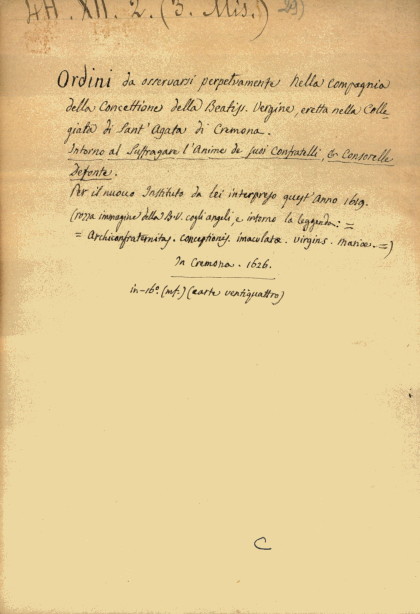 4H. XII. 2. (3. Mis.)
Ordini da osservarsi perpetuamente nella Compagnia
della Concettione della Beatiss. Vergine, eretta nella Colle=
giata di Sant'Agata di Cremona.
Intorno al Suffragare l'Anime de suoi Confratelli, & Consorelle
Defonte.
Per il nuovo Instituto da lei interpreso quest'Anno 1619.
(rozza immagine della B.V. cogli angeli, e intorno la leggenda: =
= Archiconfraternitas. conceptionis. imaculatæ. virginis. mariæ. =)
In Cremona. 1626.
in-16º. (mf.) (carte ventiquattro)
C